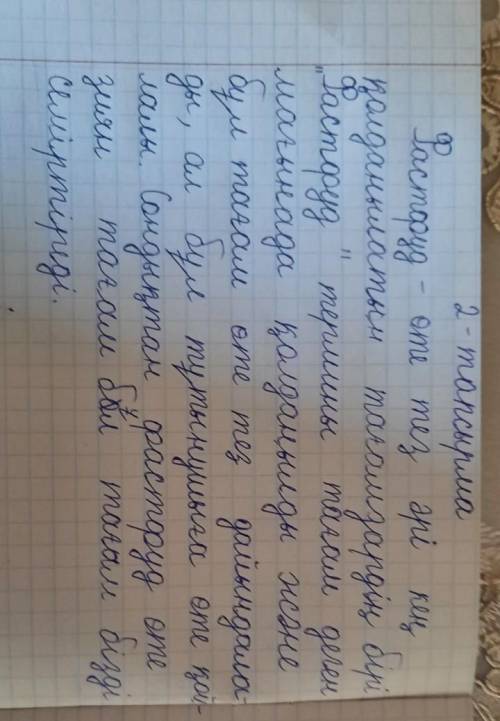 2-тапсырма
Фастфуд - өте тез әрі кең
қолданылатын тағамдардің бірі
"Фастфуд" термины тағам деген
мағынада қолданылды және
бұл тағам өте тез дайындала-
ды, ал бұл тұтынушыға өте қай-
лалы. Сондықтан фастфуд өте
зиян тағам бұл тағам бізді
семіртіреді.